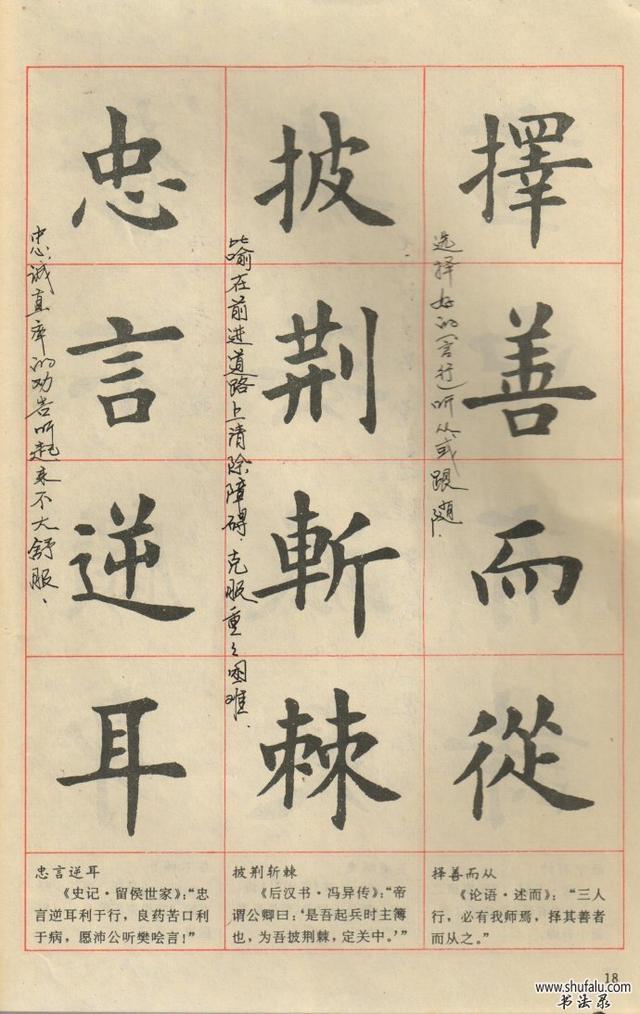 擇善而從
选择好的(善行)听从或跟随.
披荆斬棘
比喻在前进道路上清除障碍.克服重重困难.
忠言逆耳
忠诚直率的劝告听起来不大舒服.
择善而从
《论语·述而》：“三人
行，必有我师焉，择其善者
而从之。”
披荆斩棘
《后汉书·冯异传》：“帝
谓公卿曰：‘是吾起兵时主簿
也，为吾披荆棘，定关中。’”
忠言逆耳
《史记·留侯世家》：“忠
言逆耳利于行，良药苦口利
于病，愿沛公听樊哙言！”
18
www.shufalu.com
书法录